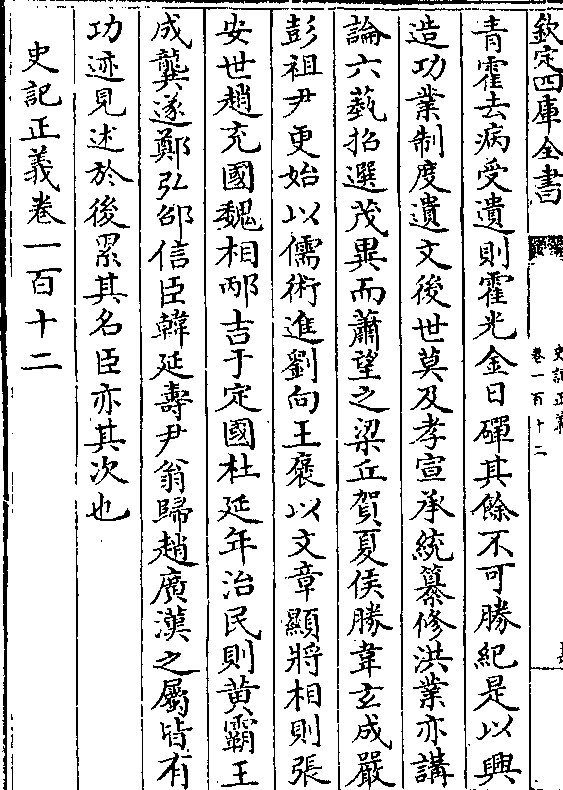 欽定四庫全書
史記正義
卷一百十二
青霍去病受遺則霍光金日磾其餘不可勝紀是以興
造功業制度遺文後世莫及孝宣承統纂修洪業亦講
論六藝招選茂異而蕭望之梁丘賀夏侯勝韋玄成嚴
彭祖尹更始以儒術進劉向王褒以文章顯將相則張
安世趙充國魏相邴吉于定國杜延年治民則黄霸王
成龔遂鄭弘邵信臣韓延壽尹翁歸趙廣漢之屬皆有
功迹見述於後累其名臣亦其次也
史記正義卷一百十二